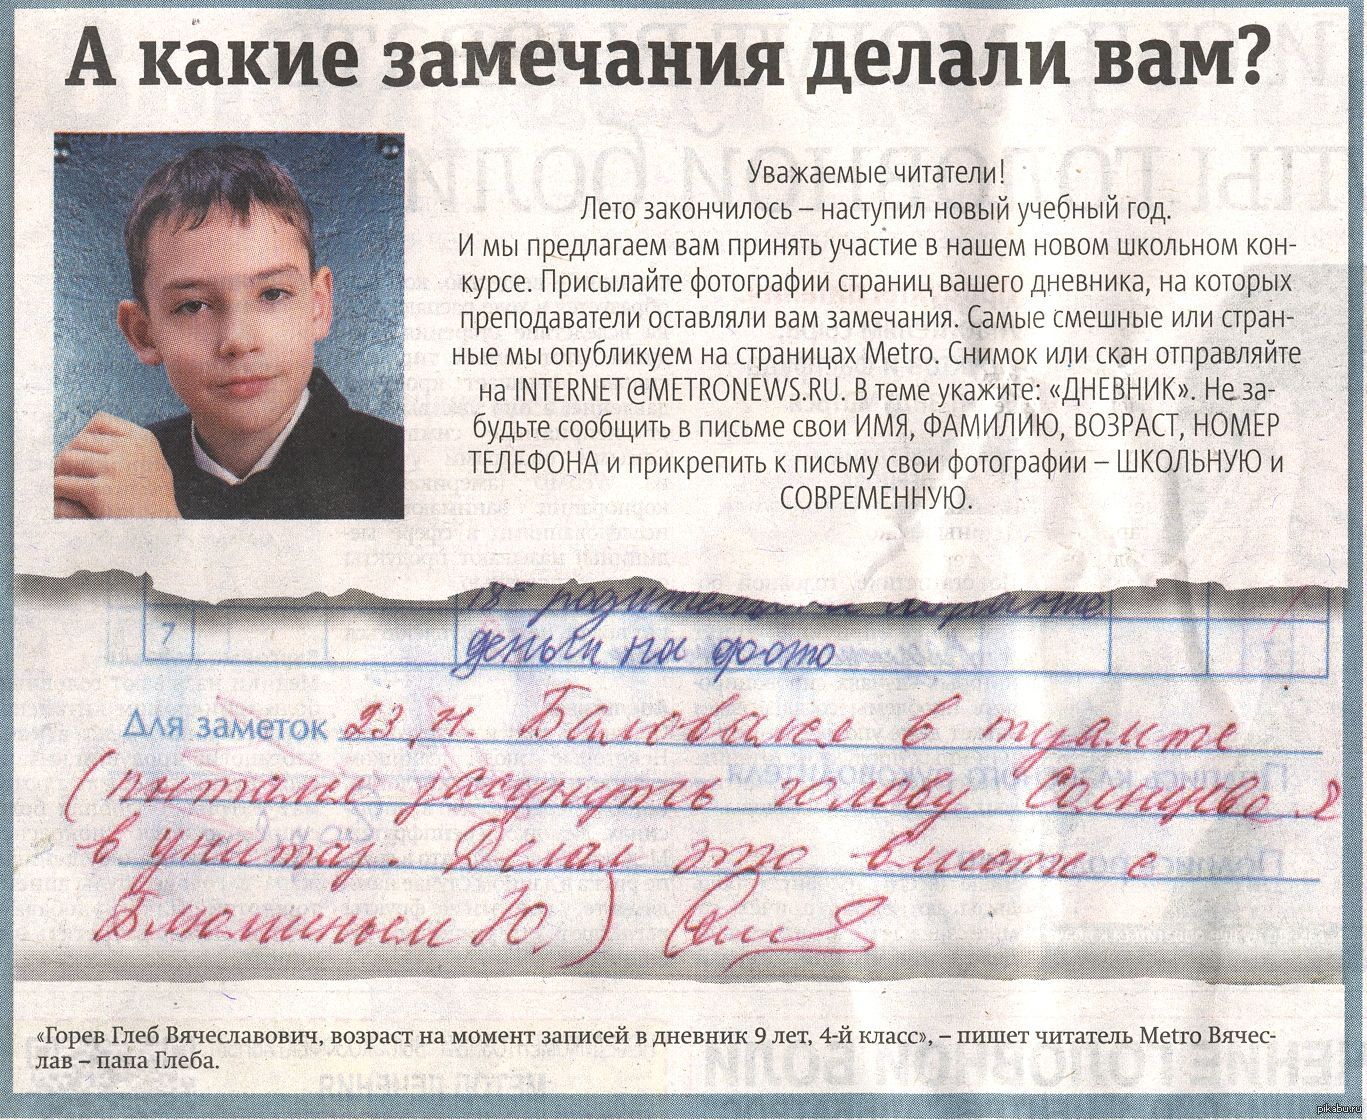 А какие замечания делали вам?
Уважаемые читатели!
Лето закончилось – наступил новый учебный год.
И мы предлагаем вам принять участие в нашем новом школьном кон-
курсе. Присылайте фотографии страниц вашего дневника, на которых
преподаватели оставляли вам замечания. Самые смешные или стран-
ные мы опубликуем на страницах Metro. Снимок или скан отправляйте
на INTERNET@METRONEWS.RU. В теме укажите: «ДНЕВНИК». Не за-
будьте сообщить в письме свои ИМЯ, ФАМИЛИЮ, ВОЗРАСТ, НОМЕР
ТЕЛЕФОНА и прикрепить к письму свои фотографии – ШКОЛЬНУЮ и
СОВРЕМЕННУЮ.
7
деньги на фото
Для заметок 23.н. Баловался в туалете
(пытался засунуть голову Солнцева Я
в унитаз Делал это вместе с
Блюминым Ю.)
«Горев Глеб Вячеславович, возраст на момент записей в дневник 9 лет, 4-й класс», – пишет читатель Metro Вячес-
лав – папа Глеба.
pikabu.ru